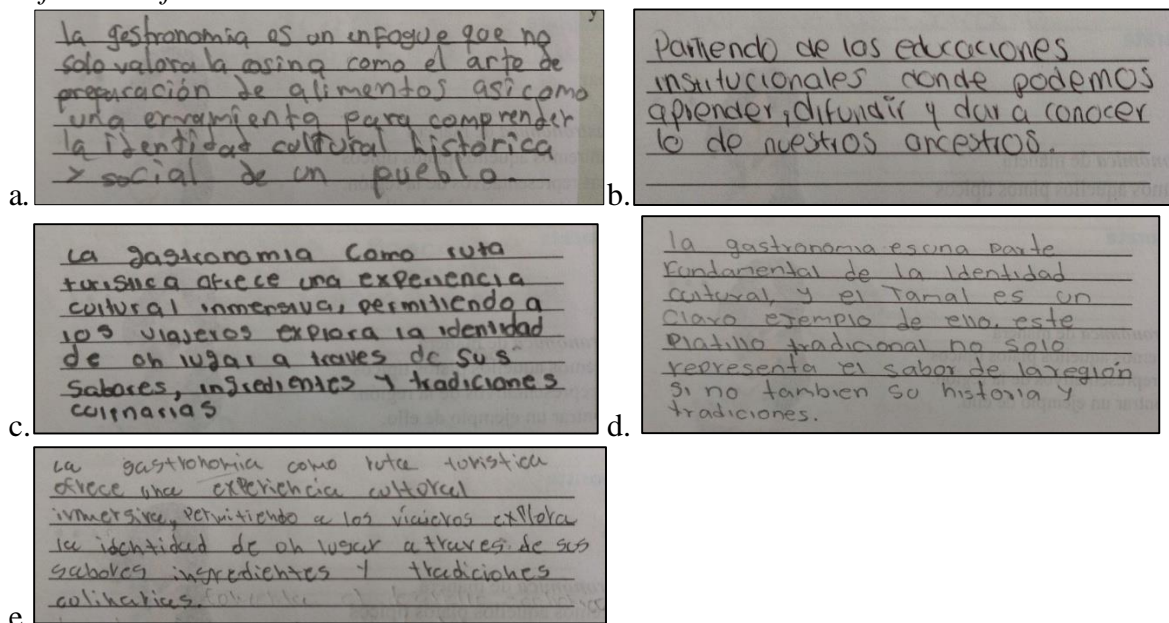 a.
la gestronomia es un enfoque que no
solo valora la cosina como el arte de
preparación de alimentos así como
una erramienta para comprender
la identidad cultural histórica
y social de un pueblo.
b.
Partiendo de las educaciones
institucionales donde podemos
aprender, difundir y dar a conocer
lo de nuestros ancestros.
c.
La gastronomia como ruta
turistica ofrece una experiencia
cultural inmensiva, permitiendo a
los viajeros explora la identidad
de oh lugar a traves de sus
sabores, ingredientes y tradiciones
culinarias
d.
la gastronomia es una parte
fundamental de la identidad
cultural, y el Tamal es un
claro ejemplo de ello, este
platillo tradicional no solo
representa el sabor de la región
si no tambien su historia y
tradiciones.
e.
La gastronomia como ruta turistica
ofrece una experiencia cultural
inmersiva, permitiendo a los viajeros explora
la identidad de oh lugar a traves de sus
sabores ingredientes y tradiciones
culinarias.